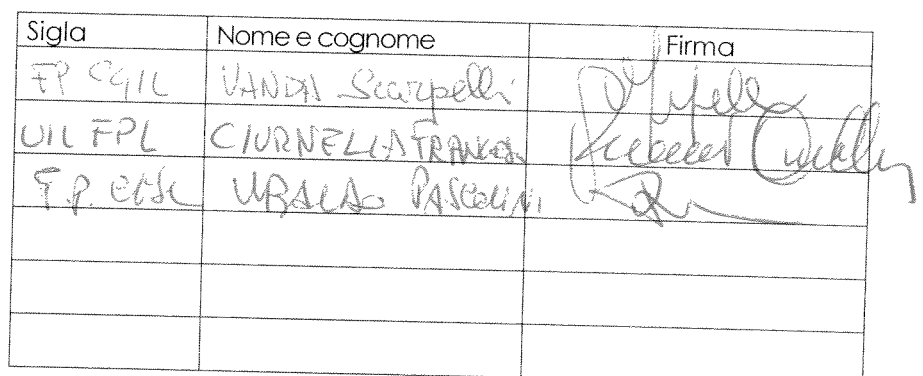 Sigla Nome e cognome Firma
FP CGIL VANDA Scarpelli
UIL FPL CIURNELLI FRANCESCO
F.P. CISL UBALDO PASCOLINI